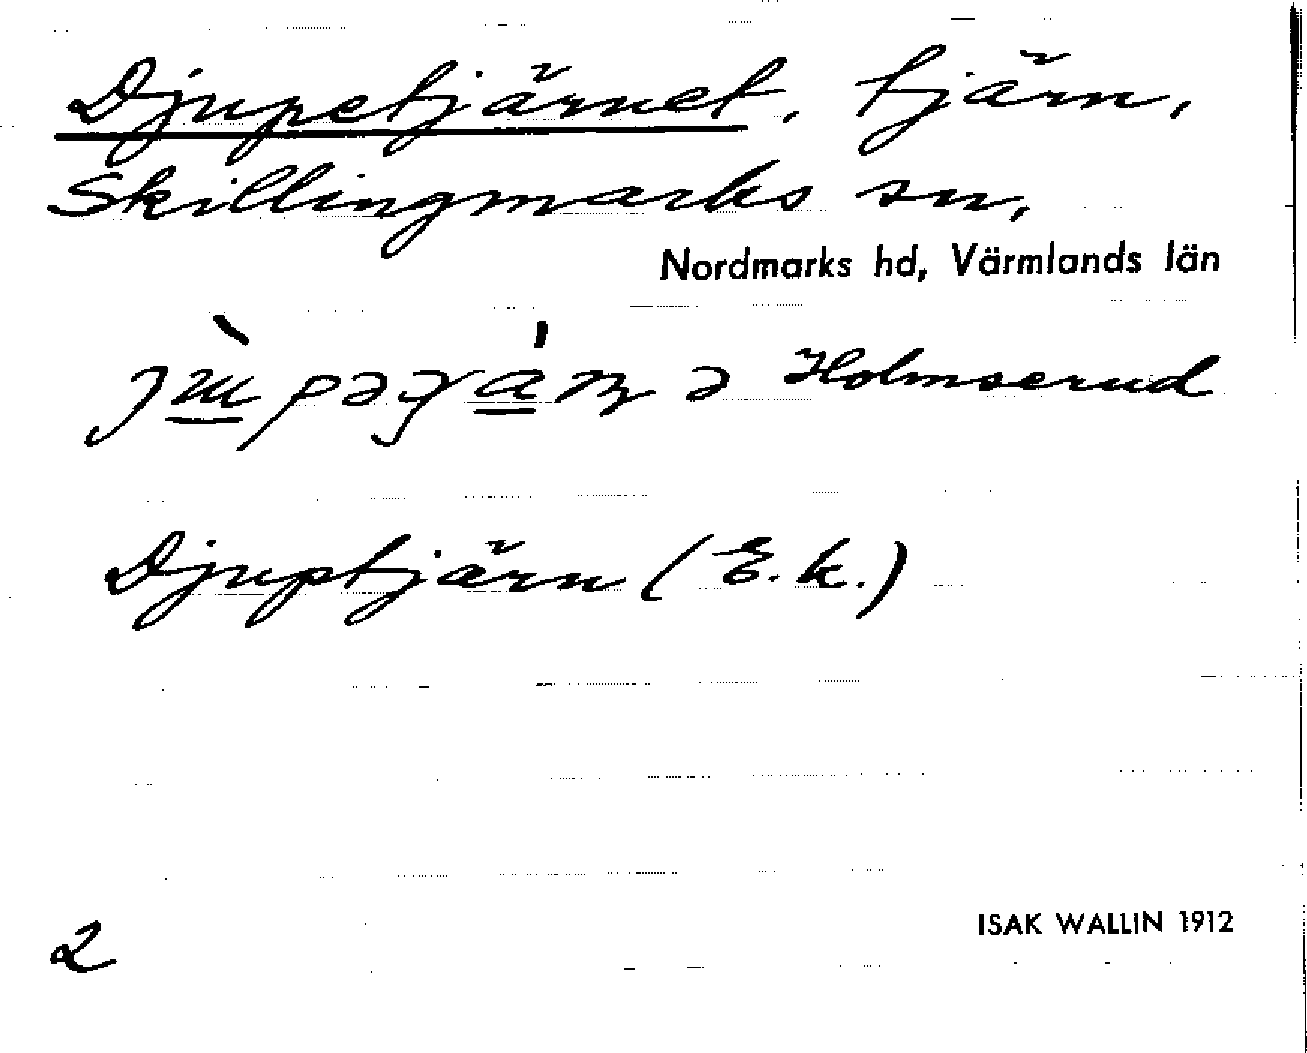 Djupetjärnet, tjärn,
Skillingmarks sn,
Nordmarks hd, Värmlands län
Holmserud
Djuptjärn (E.k.)
ISAK WALLIN 1912
2